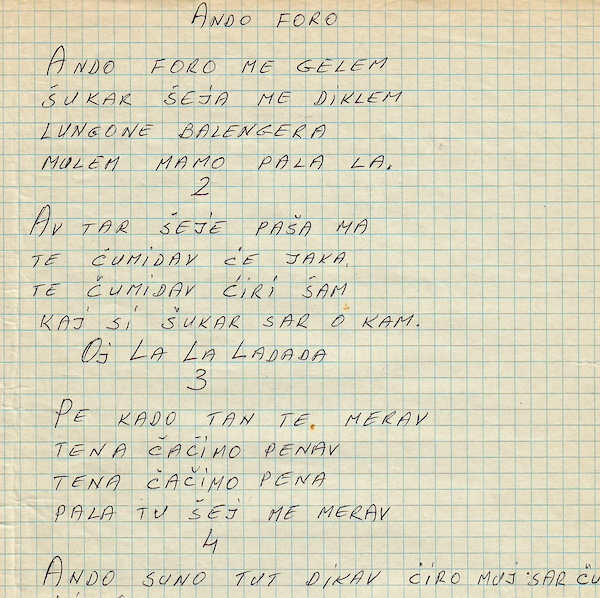 ANDO FORO
ANDO FORO ME GELEM
ŠUKAR ŠEJA ME DIKLEM
LUNGONE BALENGERA
MULEM MAMO PALA LA.
2
AV TAR ŠEJE PAŠA MA
TE ČUMIDAV ĆE JAKA
TE ČUMIDAV ĆIRI ŠAM
KAJ SI ŠUKAR SAR O KAM.
OJ LA LA LADADA
3
PE KADO TAN TE MERAV
TENA ČAČIMO PENAV
TENA ČAČIMO PENA
PALA TU ŠEJ ME MERAV
4
ANDO SUNO TUT DIKAV ĆIRO MUJ SAR ČU